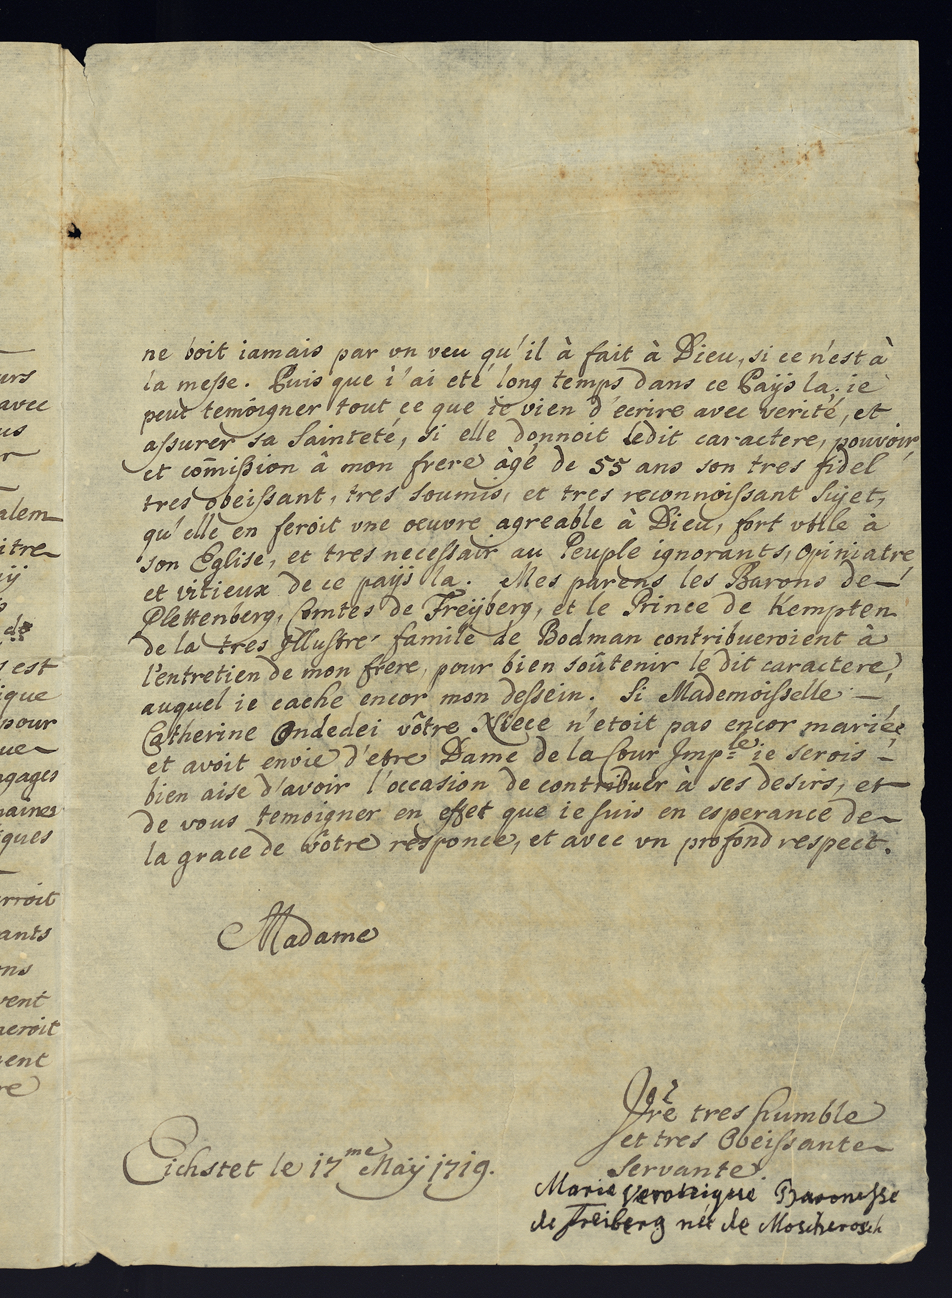 urs
avec
us
r
alem
itre
ij
s
de
s est
ique
pour
ue
gages
aines
iques
rroit
ants
ns
vent
neroit
ent
re
ne boit iamais par vn veu qu'il à fait à Dieu, si ce n'est à
la messe. Puis que i'ai eté long temps dans ce Païjs la, ie
peut temoigner tout ce que ie vien d'ecrire avec verité, et
assurer sa Sainteté, si elle donnoit ledit caractere, pouvoir
et com̄ission â mon frere âgé de 55 ans son tres fidel
tres obeissant, tres soumis, et tres reconnoissant Sujet,
qu'elle en feroit vne oeuvre agreable à Dieu, fort vtile à
son Eglise, et tres necessair au Peuple ignorants, opiniatre
et vitieux de ce païjs la. Mes parens les Barons de
Plettenberg, Comtes de Freÿberg, et le Prince de Kempten
de la tres Jllustre famile de Bodman contribueroient à
l'entretien de mon frere, pour bien soûtenir le dit caractere,
auquel ie cache encor mon dessein. Si Mademoisselle
Catherine Ondedei vôtre Niece n'etoit pas encor mariée
et avoit envie d'etre Dame de la Cour Jmp:le ie serois
bien aise d'avoir l'occasion de contribuer à ses desirs, et
de vous temoigner en effet que ie suis en esperance de
la grace de vôtre responce, et avec vn profond respect.
Madame
Vre tres humble
et tres Obeissante
Servante
Eichstet le 17me Maÿ 1719.
Marie Veronique Baronesse
de Freiberg née de Moscherosch